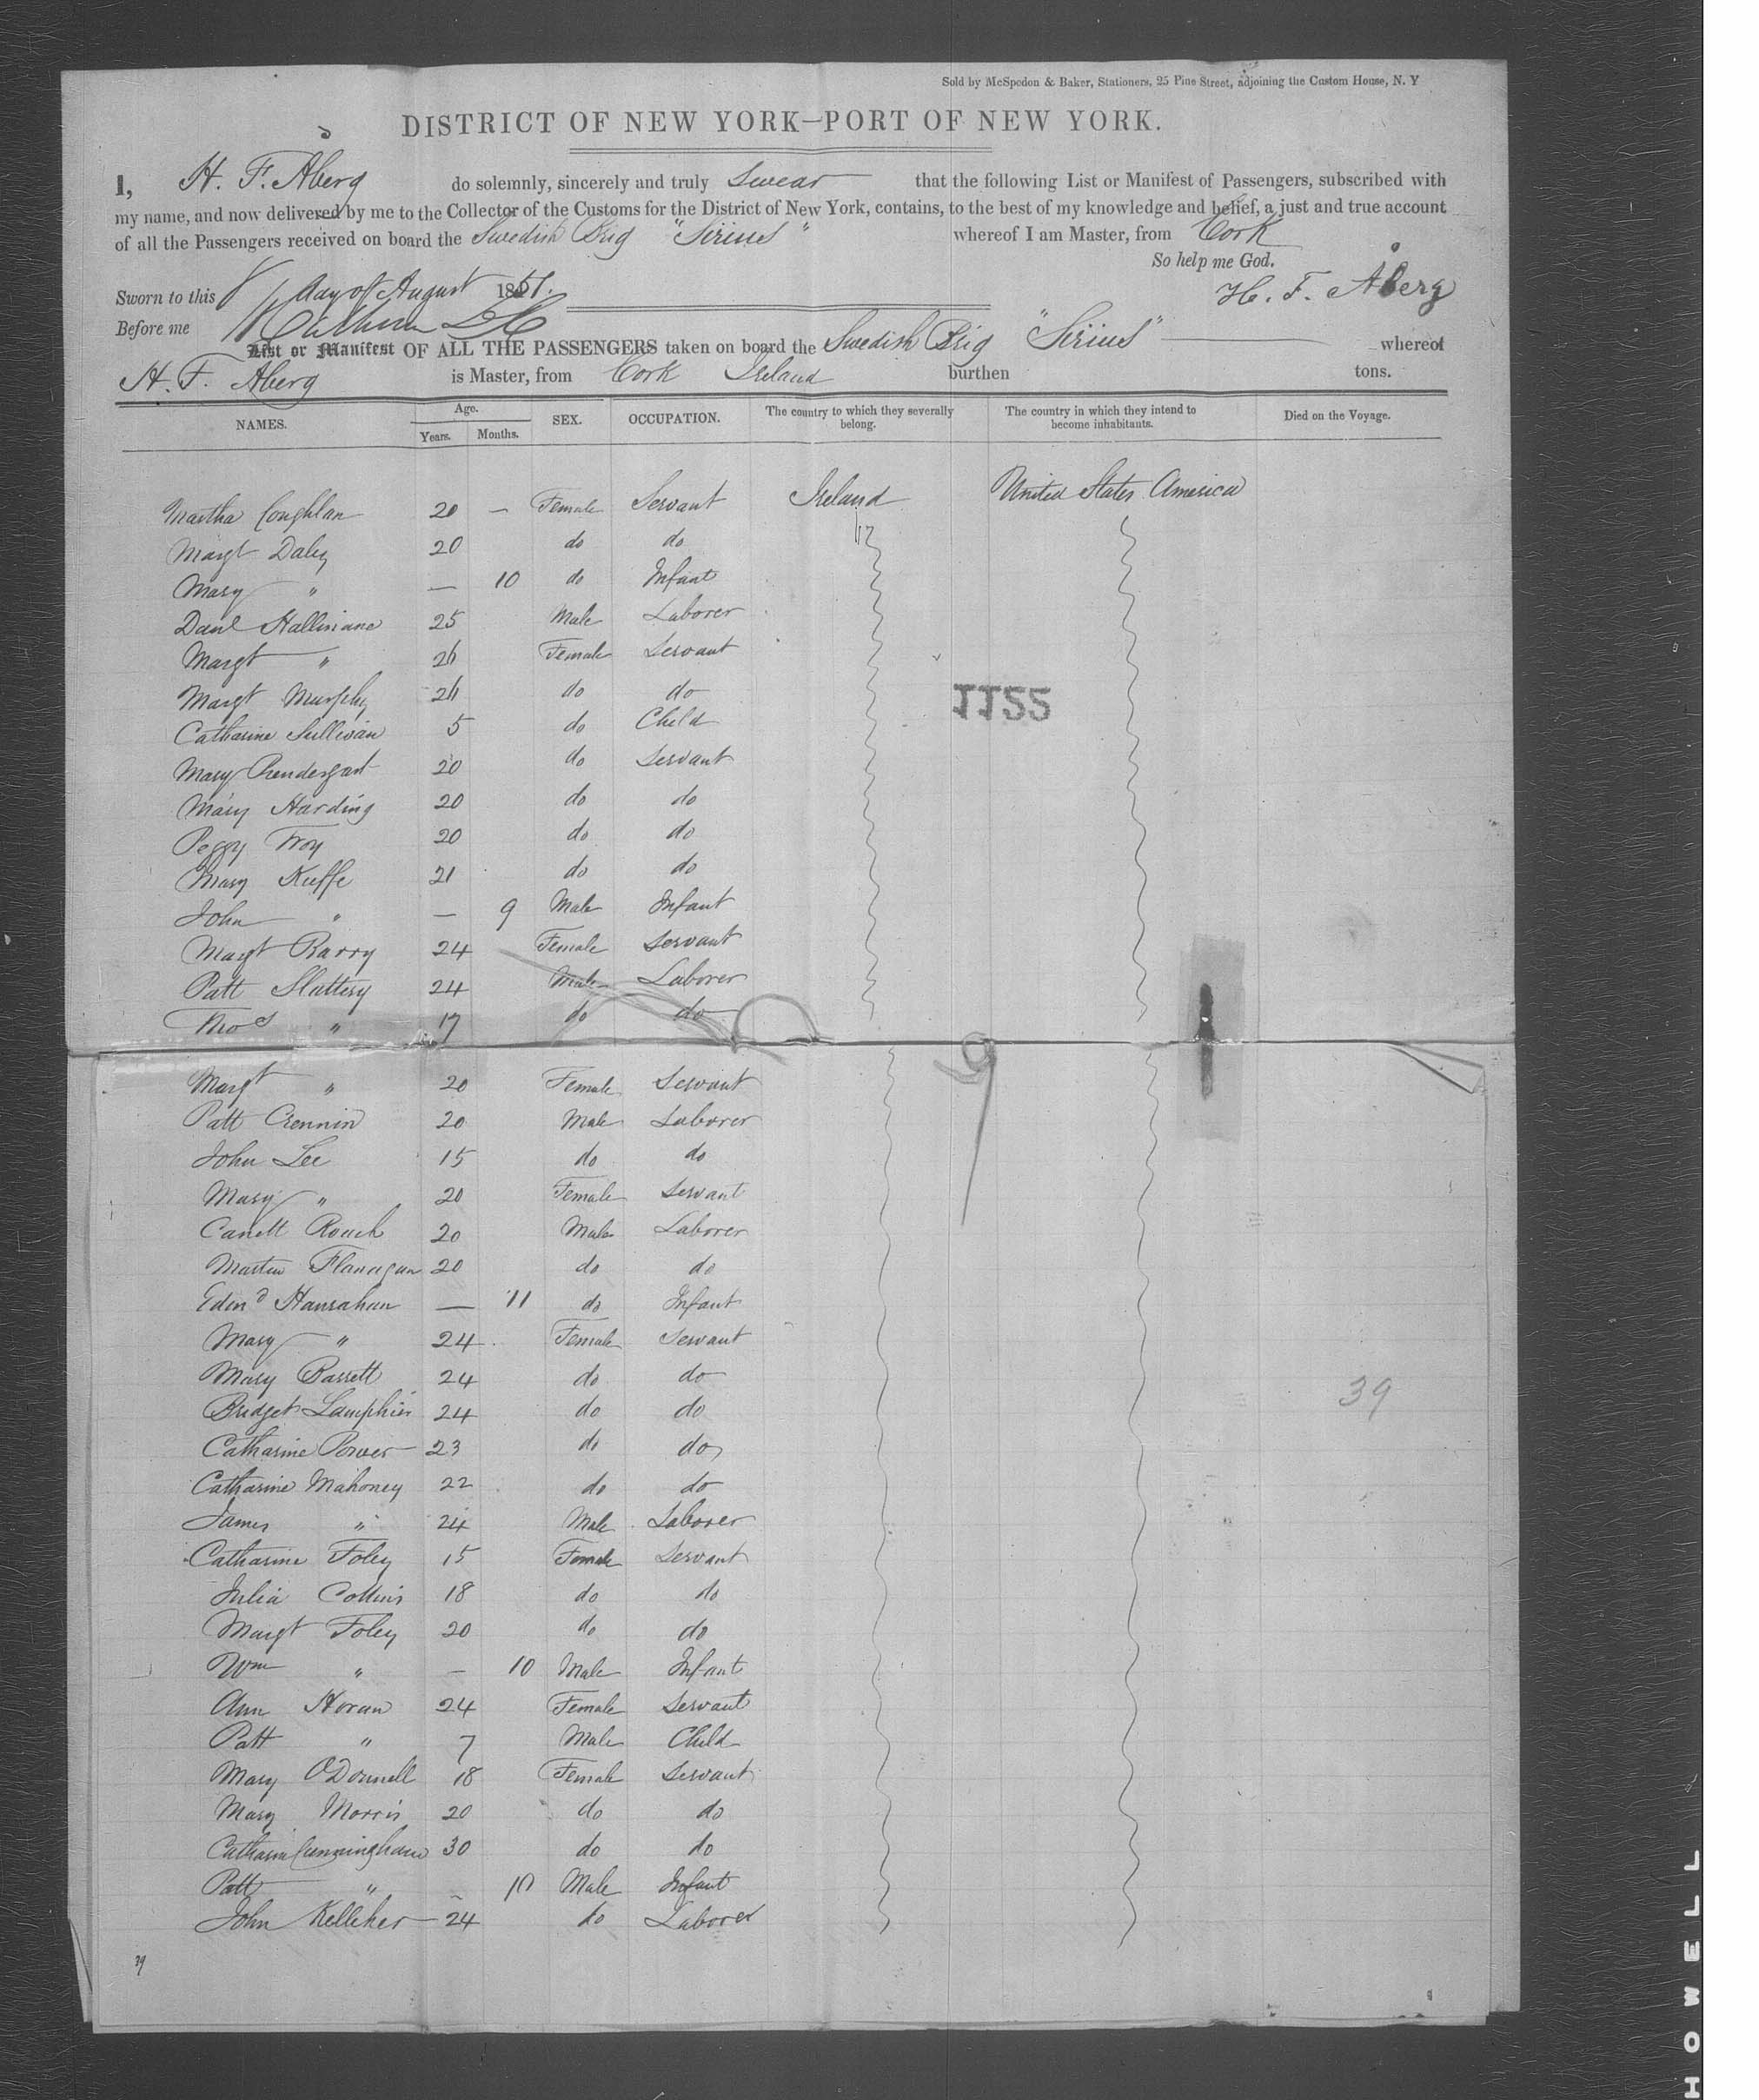 Sold by McSpedon & Baker, Stationers, 25 Pine Street, adjoining the Custom House, N. Y
DISTRICT OF NEW YORK—PORT OF NEW YORK.
I, H. F. Åberg do solemnly, sincerely and truly Swear that the following List or Manifest of Passengers, subscribed with
my name, and now delivered by me to the Collector of the Customs for the District of New York, contains, to the best of my knowledge and belief, a just and true account
of all the Passengers received on board the Swedish Brig "Sirius" whereof I am Master, from Cork
So help me God.
Sworn to this 8 day of August 1851.
H. F. Åberg
Before me
List or Manifest OF ALL THE PASSENGERS taken on board the Swedish Brig "Sirius" whereof
H. F. Aberg is Master, from Cork Ireland burthen tons.
NAMES. Age. Years. Months. SEX. OCCUPATION. The country to which they severally belong. The country in which they intend to become inhabitants. Died on the Voyage.
Martha Coughlan 20 — Female Servant Ireland United States America
Margt Daley 20 do do
Mary " — 10 do Infant
Danl Hallinane 25 Male Laborer
Margt " 26 Female Servant
Margt Murphy 26 do do
1155
Catharine Sullivan 5 do Child
Mary Prendergast 20 do Servant
Mary Harding 20 do do
Peggy Troy 20 do do
Mary Keeffe 21 do do
John " — 9 Male Infant
Margt Barry 24 Female Servant
Patt Slattery 24 Male Laborer
Thos " 17 do do
9
Margt " 20 Female Servant
Patt Crennin 20 Male Laborer
John Lee 15 do do
Mary " 20 Female Servant
Roach 20 Male Laborer
Martin Flanagan 20 do do
Edmd Hanrahan — 11 do Infant
Mary " 24 Female Servant
Mary Barrett 24 do do
39
Bridget Lamphier 24 do do
Catharine Power 23 do do
Catharine Mahoney 22 do do
James " 24 Male Laborer
Catharine Foley 15 Female Servant
Julia Collins 18 do do
Margt Foley 20 do do
Wm " — 10 Male Infant
Ann Horan 24 Female Servant
Patt " 7 Male Child
Mary O'Donnell 18 Female Servant
Mary Morris 20 do do
Catharine Cunningham 30 do do
Patt " — 10 Male Infant
John Kelliher 24 do Laborer
39
HOWELL